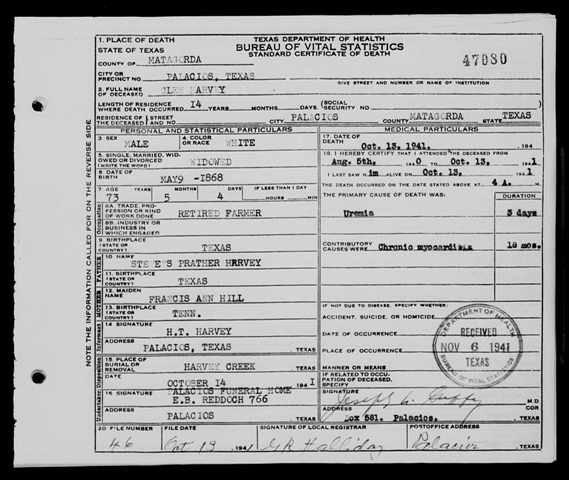 1. PLACE OF DEATH
STATE OF TEXAS
TEXAS DEPARTMENT OF HEALTH
BUREAU OF VITAL STATISTICS
STANDARD CERTIFICATE OF DEATH
47080
COUNTY OF MATAGORDA
CITY OR PRECINCT NO. PALACIOS, TEXAS
GIVE STREET AND NUMBER OR NAME OF INSTITUTION
2. FULL NAME OF DECEASED HARVEY
LENGTH OF RESIDENCE WHERE DEATH OCCURRED 14 YEARS MONTHS DAYS (SOCIAL SECURITY NO.
RESIDENCE OF THE DECEASED STREET AND NO CITY PALACIOS COUNTY MATAGORDA STATE TEXAS
PERSONAL AND STATISTICAL PARTICULARS
3. SEX MALE
4. COLOR OR RACE WHITE
5. SINGLE, MARRIED, WIDOWED OR DIVORCED (WRITE THE WORD) WIDOWED
6. DATE OF BIRTH MAY9 -1868
7. AGE YEARS MONTHS DAYS IF LESS THAN 1 DAY
73 5 4 HOURS MIN
8A. TRADE, PROFESSION OR KIND OF WORK DONE RETIRED FARMER
8B. INDUSTRY OR BUSINESS IN WHICH ENGAGED
9. BIRTHPLACE (STATE OR COUNTRY) TEXAS
10. NAME PRATHER HRRVEY
11. BIRTHPLACE (STATE OR COUNTRY) TEXAS
12. MAIDEN NAME FRANCIS ANN HILL
13. BIRTHPLACE (STATE OR COUNTRY) TENN.
14. SIGNATURE H.T. HARVEY
ADDRESS PALACIOS, TEXAS TEXAS
15. PLACE OF BURIAL OR REMOVAL HARVEY CREEK TEXAS
DATE OCTOBER 14 194 1
16. SIGNATURE PALACIOS FUNERAL HOME
E.B. REDDOCH 766
ADDRESS PALACIOS TEXAS
MEDICAL PARTICULARS
17. DATE OF DEATH Oct. 13, 1941. 194
18. I HEREBY CERTIFY THAT I ATTENDED THE DECEASED FROM
Aug. 5th, 0 TO Oct. 13, 1
I LAST SAW H im ALIVE ON Oct. 13, 1
THE DEATH OCCURRED ON THE DATE STATED ABOVE AT 4 A. M.
THE PRIMARY CAUSE OF DEATH WAS: DURATION
Uremia 3 days
CONTRIBUTORY CAUSES WERE Chronic mos.
IF NOT DUE TO DISEASE, SPECIFY WHETHER:
ACCIDENT, SUICIDE, OR HOMICIDE
DATE OF OCCURRENCE
PLACE OF OCCURRENCE
MANNER OR MEANS
IF RELATED TO OCCUPATION OF DECEASED, SPECIFY
SIGNATURE Joseph M.D
ADDRESS Box 581. Palacios. TEXAS
DEPARTMENT OF HEALTH
RECEIVED
NOV 6 1941
TEXAS
BUREAU OF VITAL STATISTICS
20 FILE NUMBER FILE DATE SIGNATURE OF LOCAL REGISTRAR POSTOFFICE ADDRESS
46 Oct 13 194 GR Halliday Palacios TEXAS
NOTE THE INFORMATION CALLED FOR ON THE REVERSE SIDE